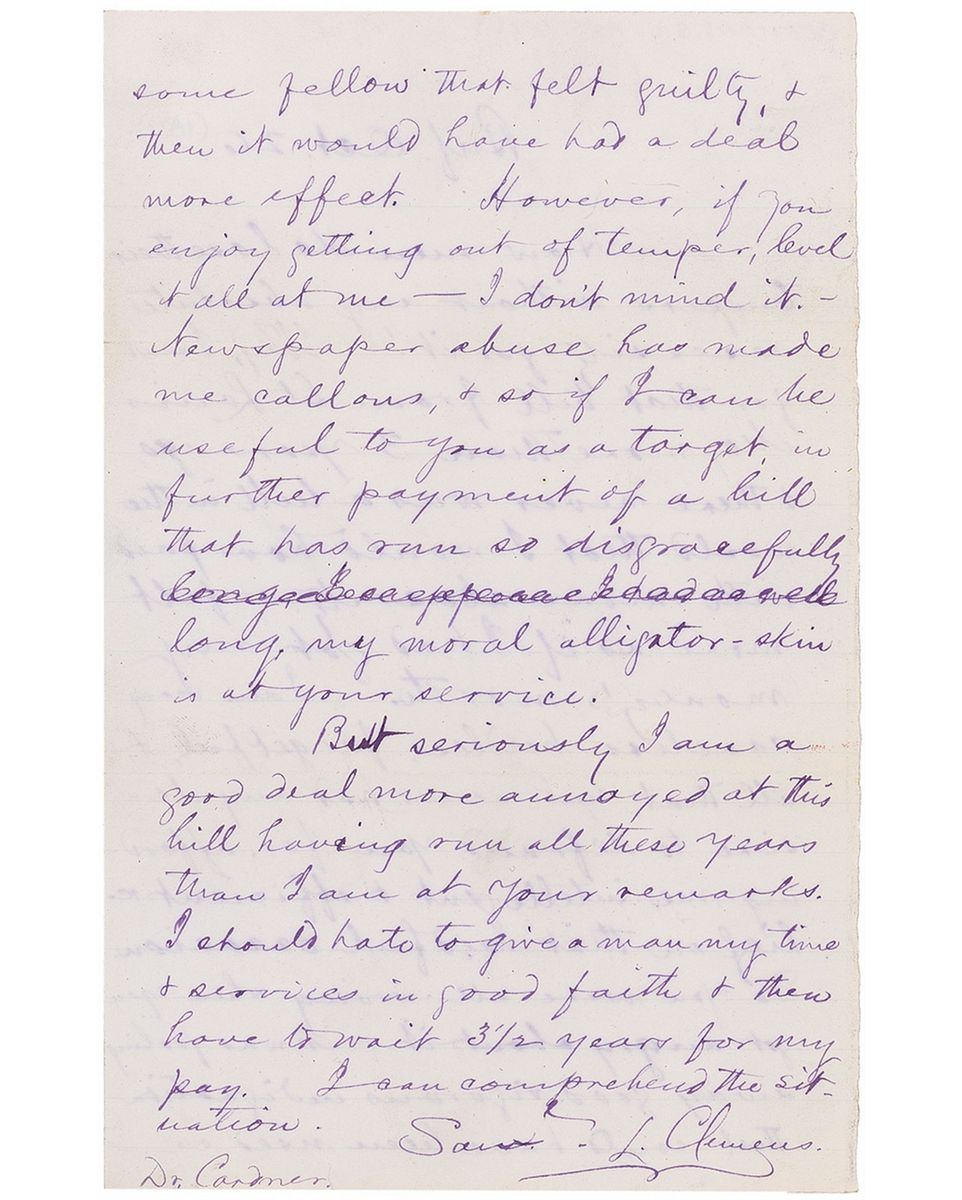 some fellow that felt guilty, &
then it would have had a deal
more effect. However, if you
enjoy getting out of temper, level
it all at me — I don't mind it. -
Newspaper abuse has made
me callous, & so if I can be
useful to you as a target, in
further payment of a bill
that has run so disgracefully
long, my moral alligator-skin
is at your service.
But seriously I am a
good deal more annoyed at this
bill having run all these years
than I am at your remarks.
I should hate to give a man my time
& services in good faith & then
have to wait 3½ years for my
pay. I can comprehend the sit-
uation.
Sam. L. Clemens.
Dr. Cardner.